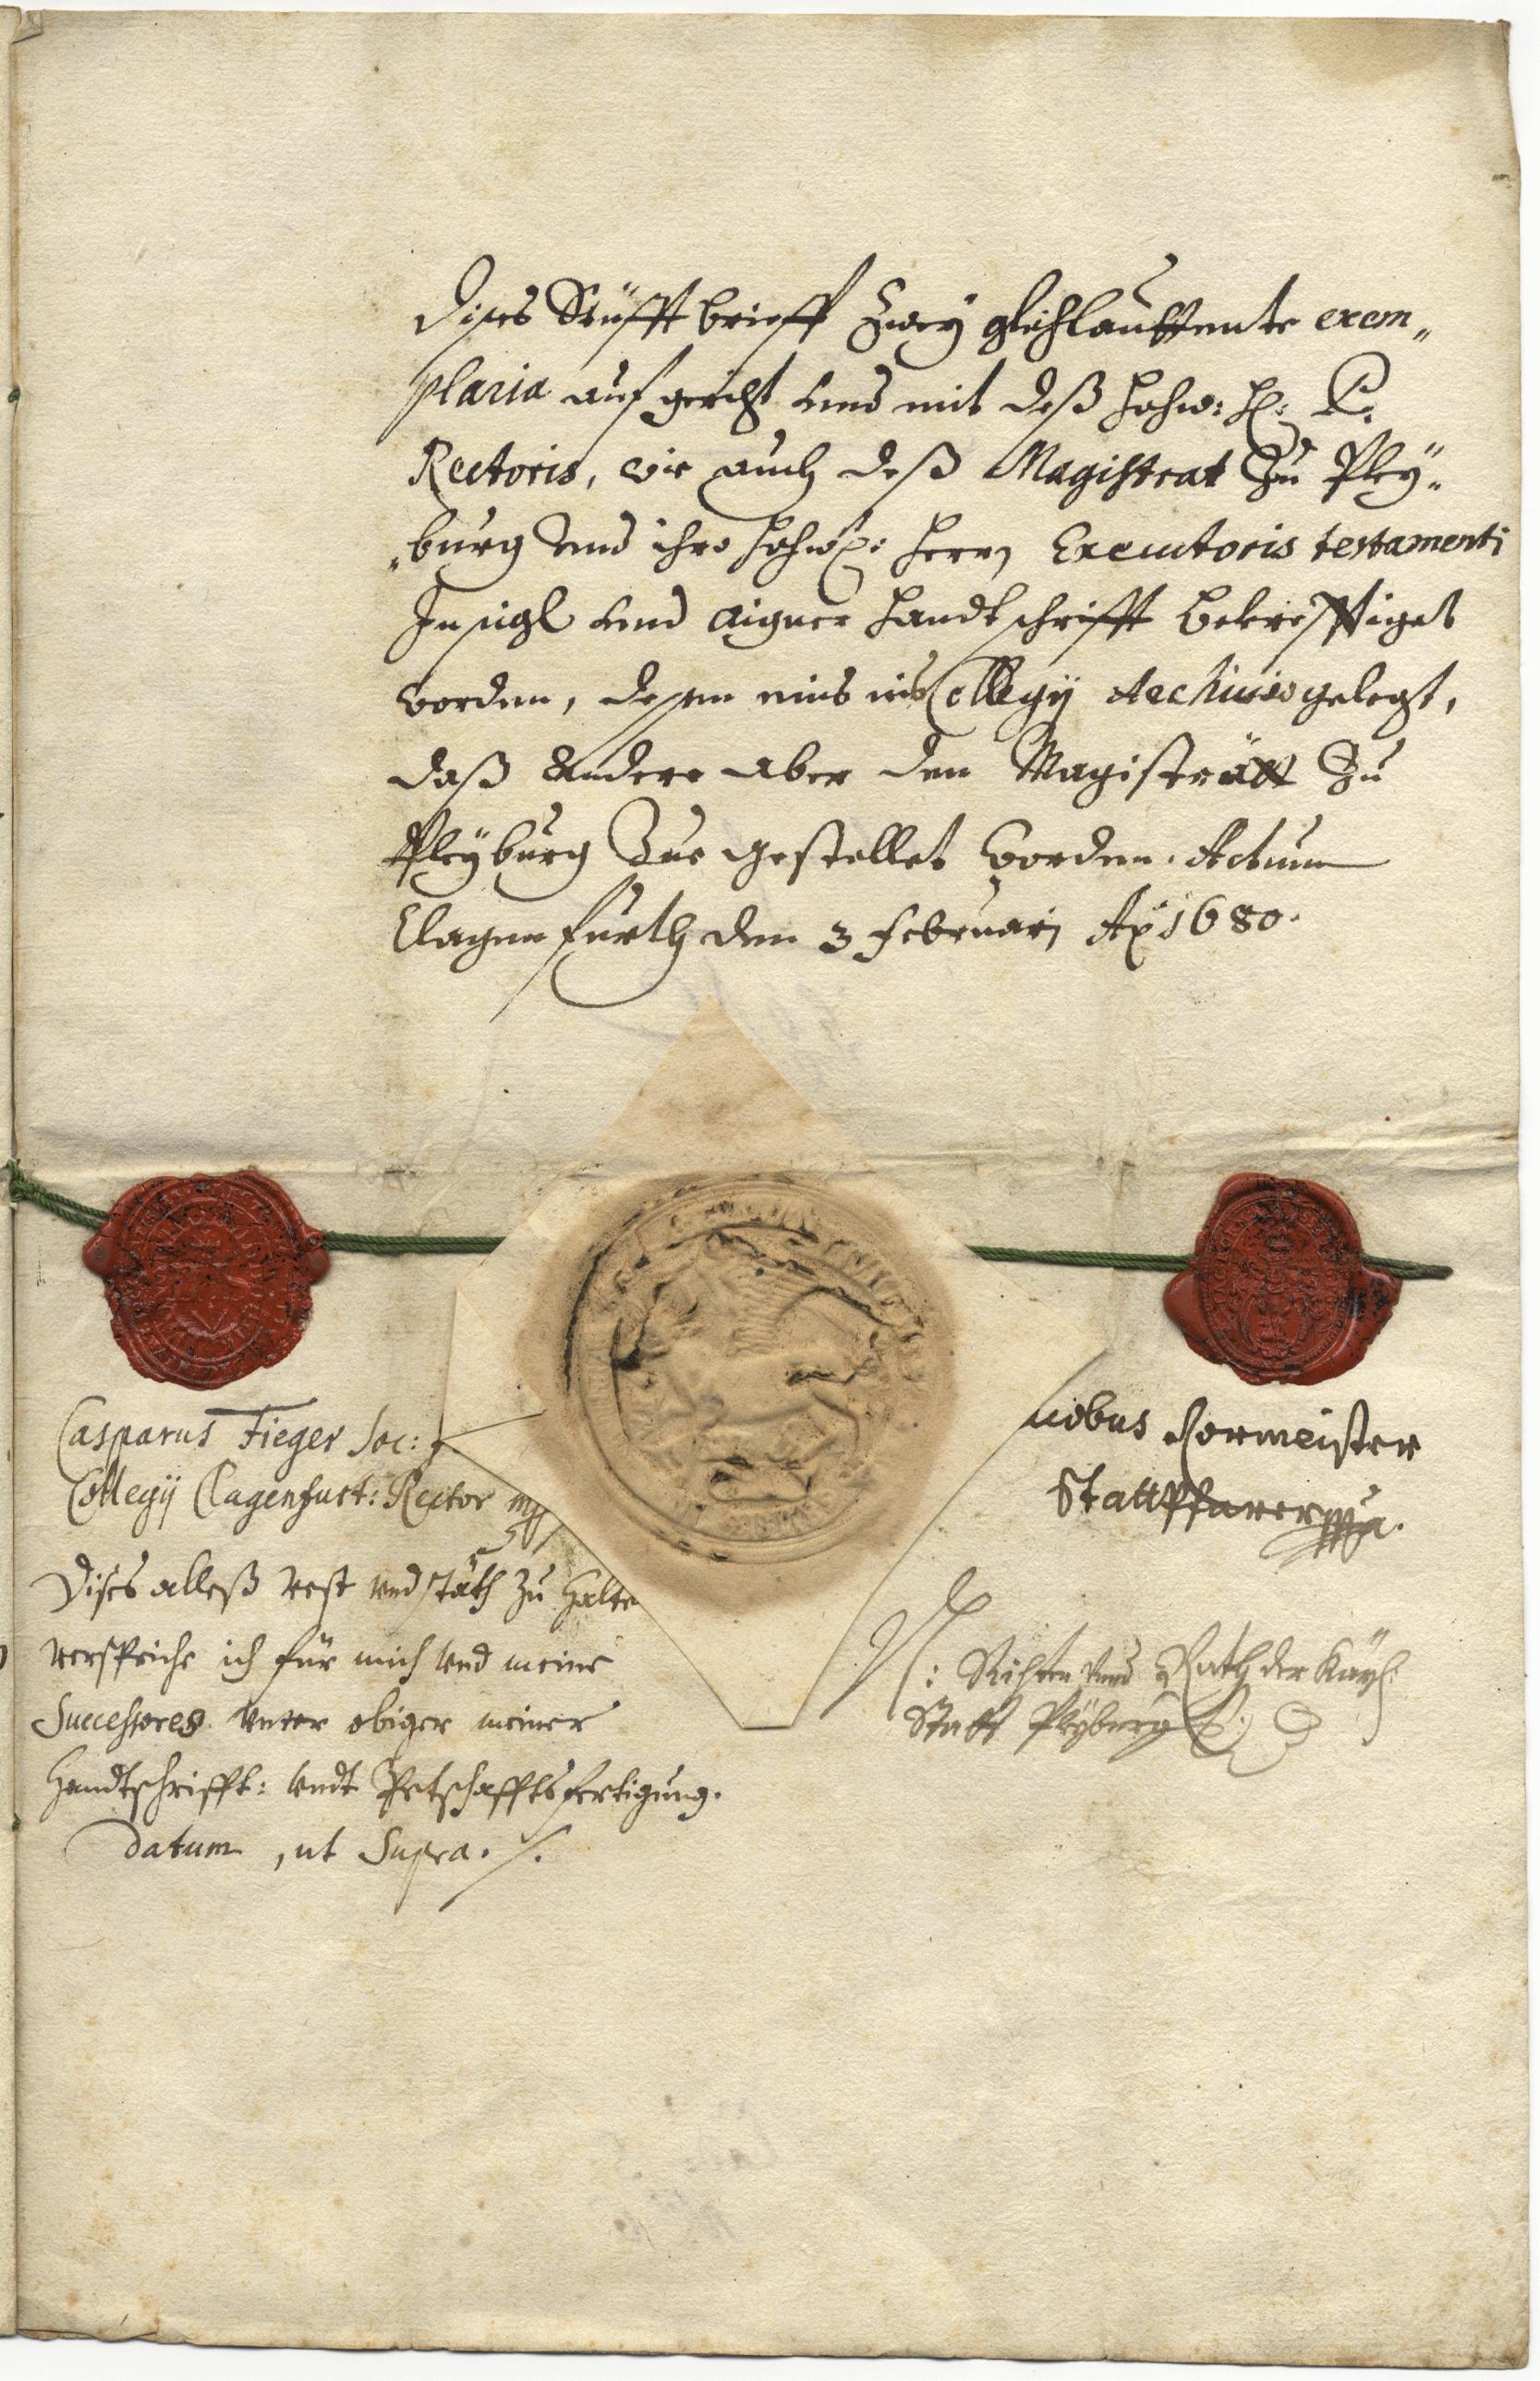 dises Stüfft brieff Zwey gleichlauttente exem„
plaria aufgericht und mit deß Hohw: H: P.
Rectoris, wie auch deß Magistrat Zu Pley„
„burg und ihro Hohw: Herrn Executoris testamenti
Insigl und aigner Handtschrifft bekrefftiget
worden, dessen eins ins Collegij Archivio gelegt,
daß Andere aber den Magistratt Zu
Pleyburg Zue gestellet worden. Actum
Clagenfurth den 3 Februarj Ao 1680.
Casparus Fieger Soc: J
Collegij Clagenfurt: Rector mp
Dises alleß vest und stäth zu halte
verspriche ich für mich und meine
Successores unter obiger meiner
Handtschrifft: undt Petschafftsfertigung.
datum, ut Supra. ./.
cobus Cormeister
Stattpfarer mpa.
N: Richter und Rath der Kays:
Statt Pleyburg